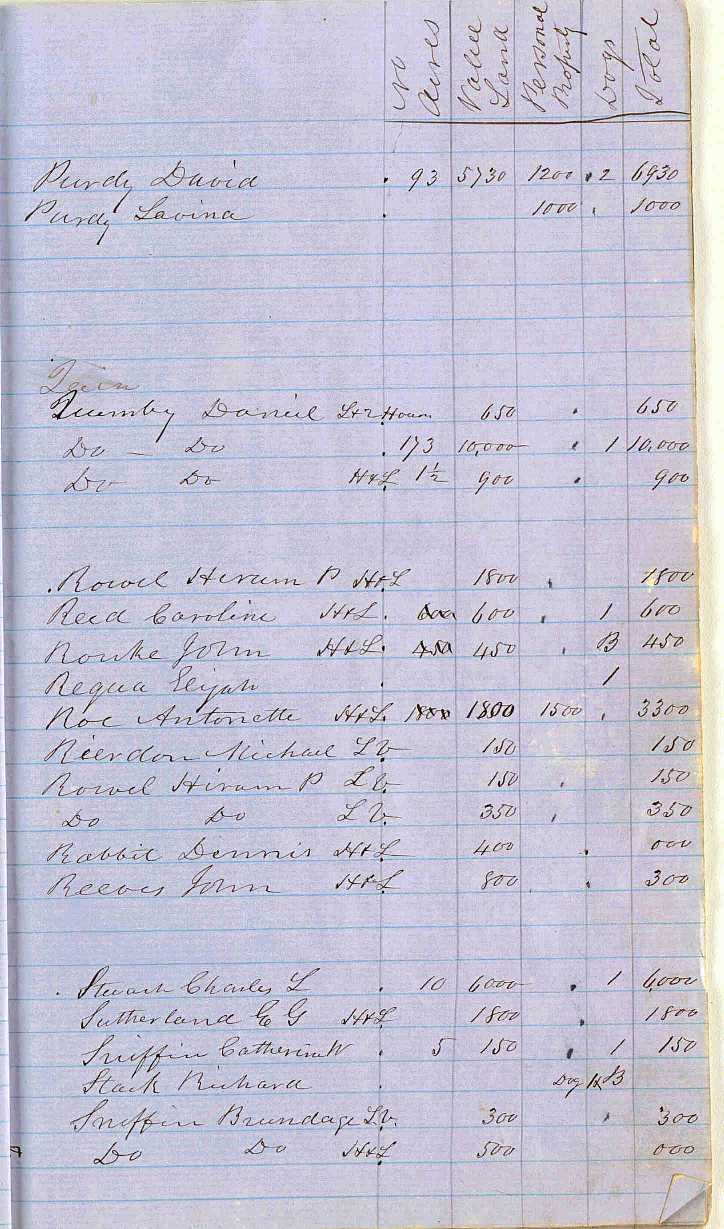 No Acres Value Land Personal Property Dogs Total
Purdy David . 93 5730 1200 . 2 6930
Purdy Lavina . 1000 . 1000
Quemby Daniel House 650 . 650
Do — Do . 173 10,000 . 1 10,000
Do Do H&L 1½ 900 . 900
. Rowel Hiram P H&L 1800 . 1800
Reed Caroline H&L . 600 600 . 1 600
Rouke John H&L . 450 450 . B 450
Requa Elijah . 1
Roe Antonette H&L . 1800 1800 1500 . 3300
Rierdon Michael L V. 150 150
Rowel Hiram P L V. 150 . 150
Do Do L V. 350 . 350
Rabbit Dennis H&L 400 . 000
Reeves John H&L 800 . 300
. Stuart Charles L . 10 6000 . 1 6,000
Sutherland E G H&L 1800 . 1800
Sniffin Catherine W . 5 150 . 1 150
Stack Richard . Dog B
Sniffin Brundage L.V. 300 . 300
Do Do H&L 500 000